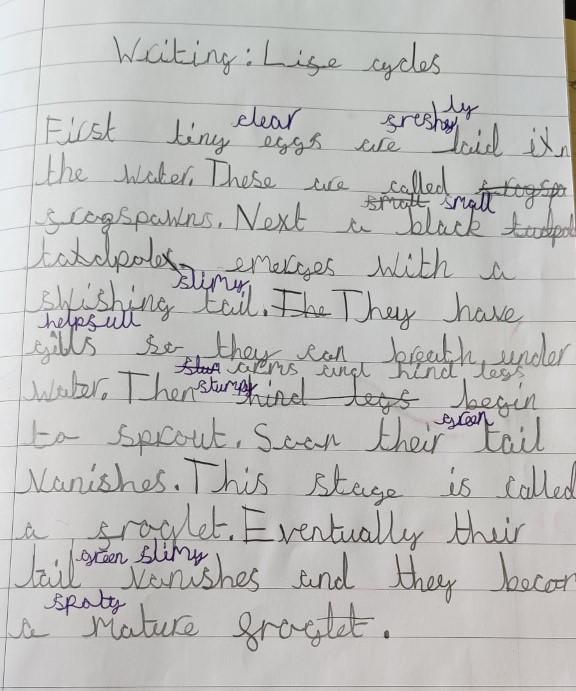 Writing: Life cycles
clear freshly
First tiny eggs are laid in
the water. These are called frogsp
small small
frogspawns. Next a black tadpol
tatdpoles emerges with a
slimy
swishing tail. The They have
helpfull
gills so they can breath under
stum arms and hind legs
water. Then stumpy hind legs begin
green
to sprout. Soon their tail
vanishes. This stage is called
a froglet. Eventually their
green slimy
tail vanishes and they becom
spoty
a mature froglet.